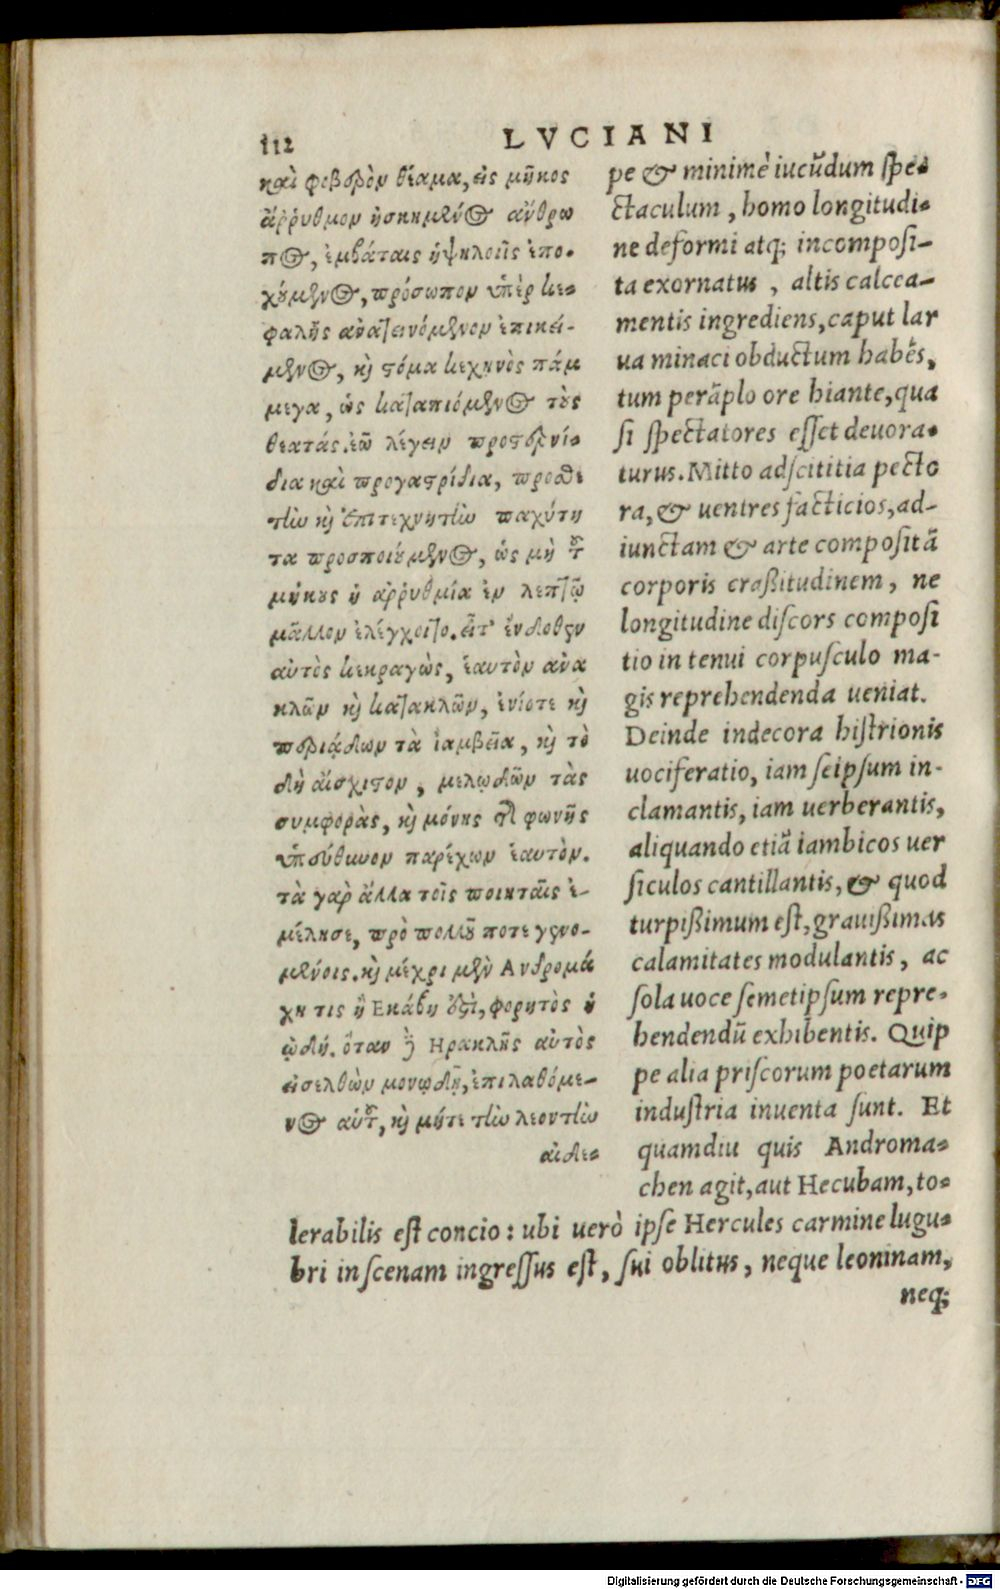 112
LVCIANI
καὶ φοβερὸν θέαμα, εἰς μῆκος
ἄῤῥυθμον ἠσκημένος ἄνθρω
πος, ἐμβάταις ὑψηλοῖς ἐπο-
χούμενος, πρόσωπον ὑπὲρ κε-
φαλῆς ἀνατεινόμενον ἐπικεί-
μενος, κỳ στόμα κεχηνὸς πάμ
μεγα, ὡς καταπιόμενος τοὺς
θεατάς. ἐῶ λέγειν προστερνί-
δια καὶ προγαστρίδια, προσθε
τὴν κỳ ἐπιτεχνητὴν παχύτη
τα προσποιούμενος, ὡς μὴ τοῦ
μήκους ἡ ἀῤῥυθμία ἐν λεπτῷ
μᾶλλον ἐλέγχοιτο. εἶτ' ἔνδοθεν
αὐτὸς κεκραγὼς, ἑαυτὸν ἀνα
κλῶν κỳ κατακλῶν, ἐνίοτε κỳ
περιᾴδων τὰ ἰαμβεῖα, κỳ τὸ
δὴ αἴσχιστον, μελῳδῶν τὰς
συμφορὰς, κỳ μόνης τῆς φωνῆς
ὑπεύθυνον παρέχων ἑαυτὸν.
τὰ γὰρ ἄλλα τοῖς ποιηταῖς ἐ-
μέλησε, πρὸ πολλοῦ ποτε γενο-
μένοις. κỳ μέχρι μὲν Ανδρομά
χη τις ἢ Εκάβη ἐστὶ, φορητὸς ἡ
ᾠδή. ὅταν δὲ Ηρακλῆς αὐτὸς
εἰσελθὼν μονῳδῇ, ἐπιλαθόμε-
νος αὑτοῦ, κỳ μήτε τὴν λεοντὴν
αἰδε-
pe & minimè iucūdum spe-
ctaculum, homo longitudi-
ne deformi atq; incomposi-
ta exornatus, altis calcea-
mentis ingrediens, caput lar
ua minaci obductum habēs,
tum perāplo ore hiante, qua
si spectatores esset deuora-
turus. Mitto adscititia pecto
ra, & uentres facticios, ad-
iunctam & arte compositā
corporis craßitudinem, ne
longitudine discors composi
tio in tenui corpusculo ma-
gis reprehendenda ueniat.
Deinde indecora histrionis
uociferatio, iam seipsum in-
clamantis, iam uerberantis,
aliquando etiā iambicos uer
siculos cantillantis, & quod
turpißimum est, grauißimas
calamitates modulantis, ac
sola uoce semetipsum repre-
hendendū exhibentis. Quip
pe alia priscorum poetarum
industria inuenta sunt. Et
quamdiu quis Androma-
chen agit, aut Hecubam, to-
lerabilis est concio: ubi uerò ipse Hercules carmine lugu-
bri in scenam ingressus est, sui oblitus, neque leoninam,
neq;
Digitalisierung gefördert durch die Deutsche Forschungsgemeinschaft - DFG